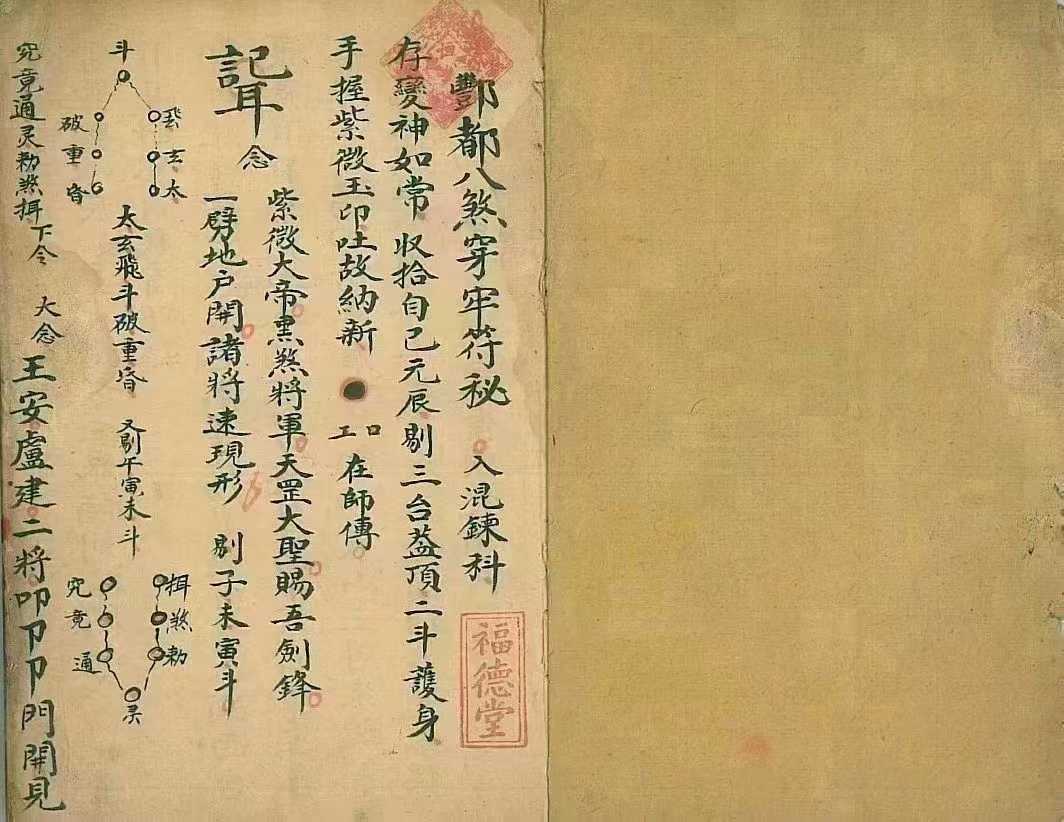 酆都八煞穿牢符秘 入混鍊科
福德堂
存變神如常 收拾自己元辰剔三台蓋頂二斗護身
手握紫微玉印吐故納新 工口 在師傳
念
紫微大帝黑煞將軍天罡大聖賜吾劍鋒
一劈地户開諸將速現形 剔子未寅斗
飛玄太
斗
破重昏
太玄飛斗破重昏 又剔午寅未斗
揖煞勑
究竟通
灵
究竟通灵勑煞揖下令 大念
王安盧建二將叩卩卩門開見